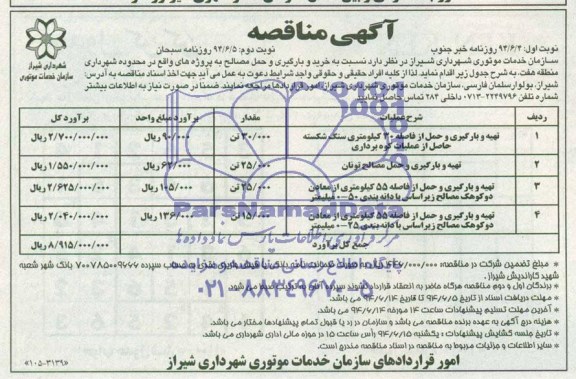 آگهی مناقصه
شهرداری شیراز
سازمان خدمات موتوری
نوبت اول: ۹۴/۶/۲ روزنامه خبر جنوب
نوبت دوم: ۹۴/۶/۵ روزنامه سبحان
سازمان خدمات موتوری شهرداری شیراز در نظر دارد نسبت به خرید و بارگیری و حمل مصالح به پروژه های واقع در محدوده شهرداری
منطقه هفت به شرح جدول زیر اقدام نماید لذا از کلیه افراد حقیقی و حقوقی واجد شرایط دعوت به عمل می آید جهت اخذ اسناد مناقصه به آدرس:
شیراز، بولوار سلمان فارسی، سازمان خدمات موتوری شهرداری شیراز امور قراردادها مراجعه نمایند. ضمناً در صورت نیاز به اطلاعات بیشتر
شماره تلفن ۲۲۴۹۷۹۶-۰۷۱۳ داخلی ۲۸۴ تماس حاصل نمایید
ردیف شرح عملیات مقدار برآورد مبلغ واحد برآورد کل
۱ تهیه و بارگیری و حمل از فاصله ۳۰ کیلومتری سنگ شکسته ۳۰/۰۰۰ تن ۹۰/۰۰۰ ریال ۲/۷۰۰/۰۰۰/۰۰۰ ریال
حاصل از عملیات کوه برداری
۲ تهیه و بارگیری و حمل مصالح تونان ۲۵/۰۰۰ تن ۶۲/۰۰۰ ریال ۱/۵۵۰/۰۰۰/۰۰۰ ریال
۳ تهیه و بارگیری و حمل از فاصله ۵۵ کیلومتری از معادن ۲۵/۰۰۰ تن ۱۰۵/۰۰۰ ریال ۲/۶۲۵/۰۰۰/۰۰۰ ریال
دوکوهک مصالح زیراساس با دانه بندی ۵۰-۰ میلیمتر
۴ تهیه و بارگیری و حمل از فاصله ۵۵ کیلومتری از معادن ۱۵/۰۰۰ تن ۱۳۶/۰۰۰ ریال ۲/۰۴۰/۰۰۰/۰۰۰ ریال
دوکوهک مصالح زیراساس با دانه بندی ۲۵-۰ میلیمتر
جمع کل برآورد ۸/۹۱۵/۰۰۰/۰۰۰ ریال
ParsNamadData
پایگاه اطلاع رسانی
۰۲۱-۸۸۳۴۹۶۷۰-۵
* مبلغ تضمین شرکت در مناقصه: سپرده ۷۰۰۷۸۵۰۰۹۶۶۶ بانک شهر شعبه
شهید کاراندیش شیراز.
* برندگان اول و دوم مناقصه هرگاه حاضر به انعقاد قرارداد نشوند سپرده
* مهلت دریافت اسناد از تاریخ ۹۴/۶/۵ تا تاریخ ۹۴/۶/۱۴ می باشد.
* آخرین مهلت تسلیم پیشنهادات ساعت ۱۴ مورخه ۹۴/۶/۱۴ می باشد.
* هزینه درج آگهی به عهده برنده مناقصه می باشد و سازمان در رد یا قبول تمام پیشنهادها مختار می باشد.
* تاریخ جلسه گشایش پیشنهادات: یکشنبه ۹۴/۶/۱۵ رأس ساعت ۱۵ در حوزه مالی اداری شهرداری می باشد.
* سایر اطلاعات و جزئیات مربوط به مناقصه در اسناد مناقصه مندرج است.
امور قراردادهای سازمان خدمات موتوری شهرداری شیراز
«۱۰۵-۳۱۳۹»